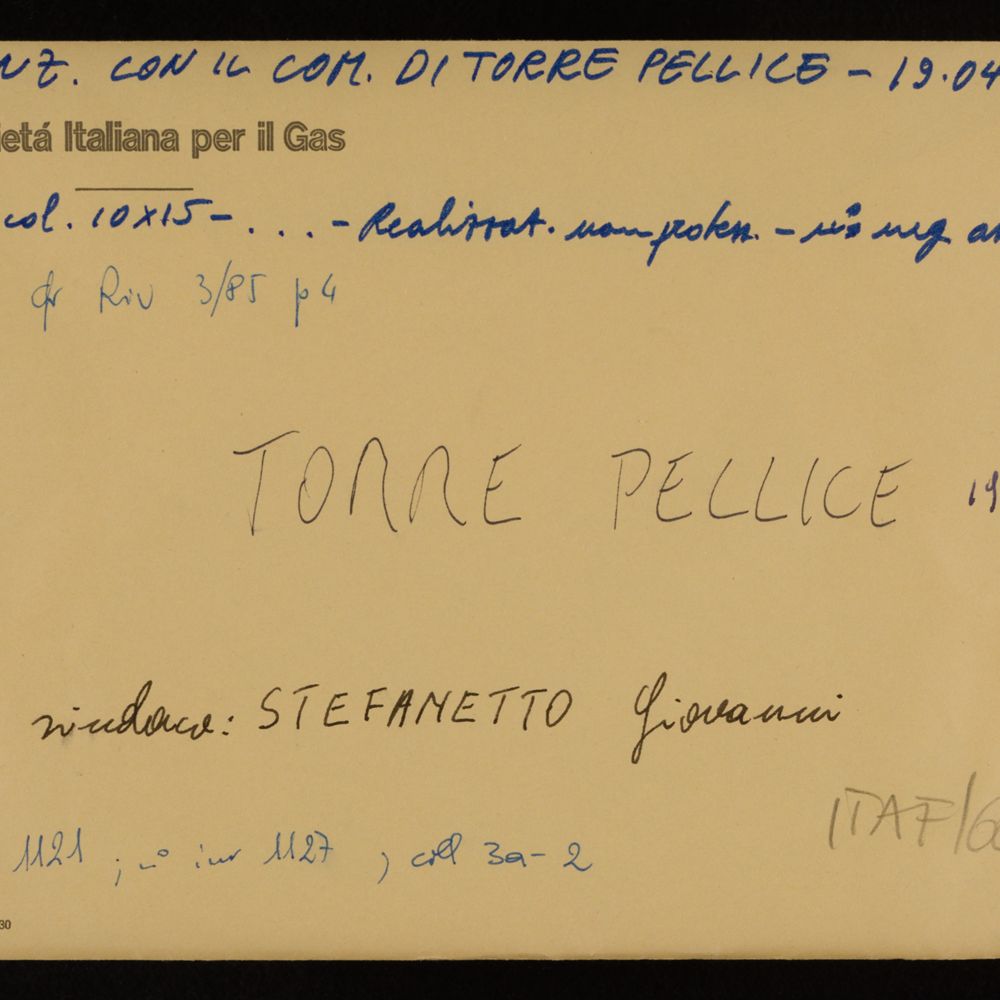 NZ. CON IL COM. DI TORRE PELLICE - 19.04
ietá Italiana per il Gas
col. 10x15 - . . . - Realizzat. - n° neg
cfr Riv 3/85 p 4
TORRE PELLICE 19
sindaco: STEFANETTO Giovanni
ITAF/6
1121 ; n° inv 1127 , coll 3a-2
30